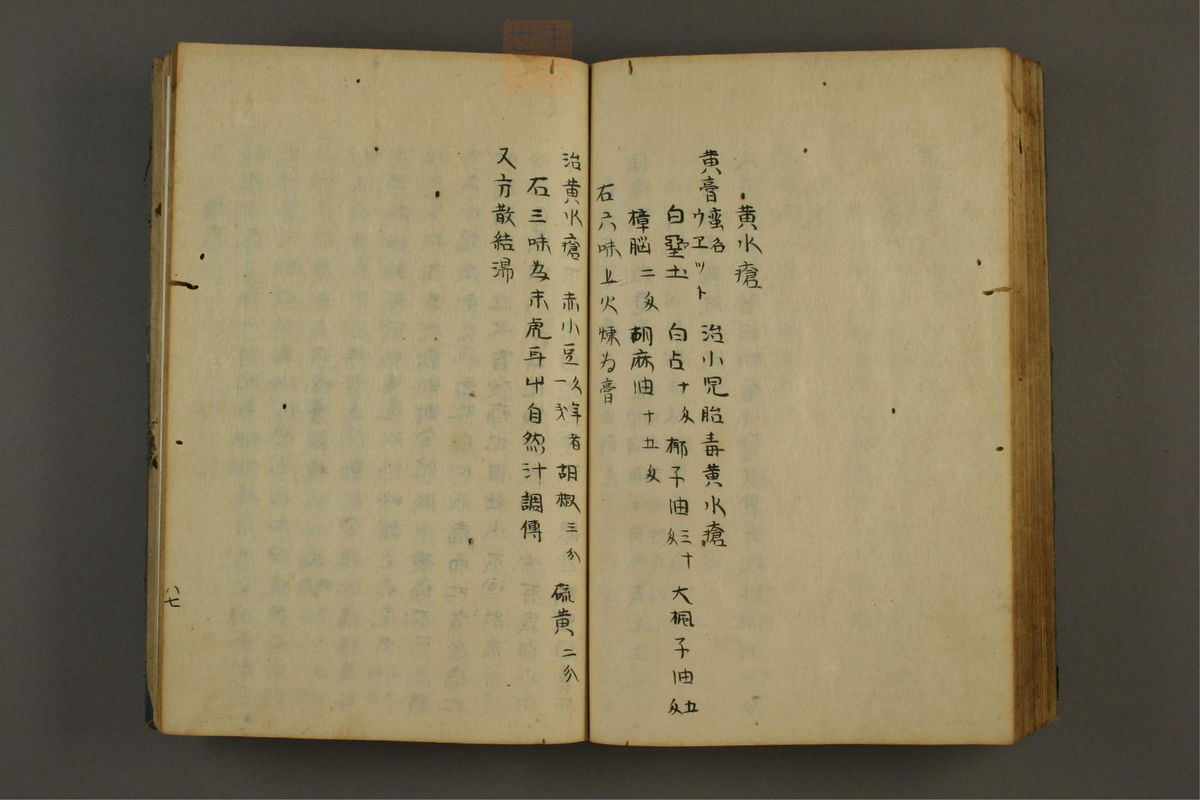 黄水瘡
黄膏 蛮名ウヱット 治小児胎毒黄水瘡
白堊土 白占十匁 椰子油三十匁 大楓子油五匁
樟脳二匁 胡麻油十五匁
右六味上火煉为膏
治黄水瘡 赤小豆 者 胡椒三分 硫黄二分
右三味为末虎耳屮自然汁調傳
又方散結湯
八七